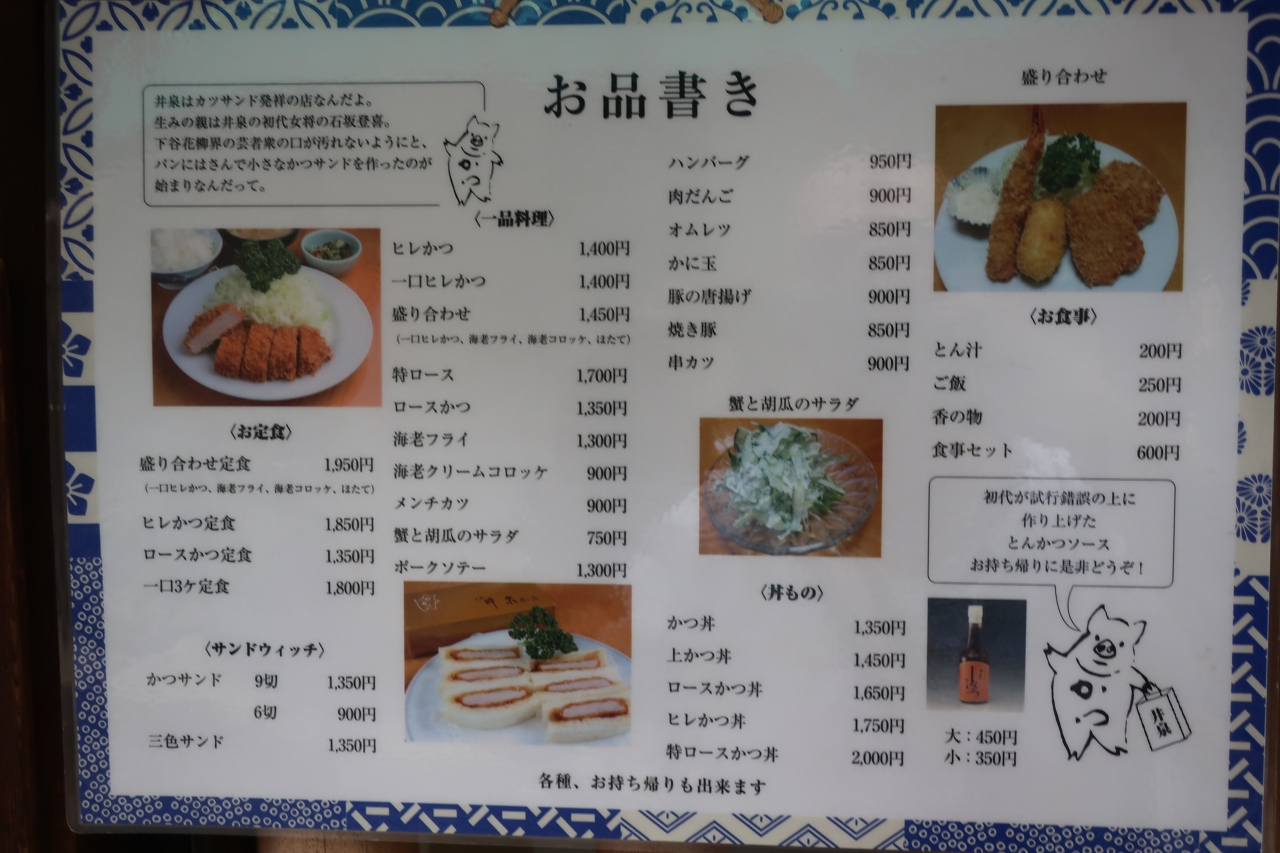 お品書き
井泉はカツサンド発祥の店なんだよ。
生みの親は井泉の初代女将の石坂登喜。
下谷花柳界の芸者衆の口が汚れないようにと、
パンにはさんで小さなかつサンドを作ったのが
始まりなんだって。
かつ
〈お定食〉
盛り合わせ定食 1,950円
(一口ヒレかつ、海老フライ、海老コロッケ、ほたて)
ヒレかつ定食 1,850円
ロースかつ定食 1,350円
一口3ケ定食 1,800円
〈サンドウィッチ〉
かつサンド 9切 1,350円
6切 900円
三色サンド 1,350円
〈一品料理〉
ヒレかつ 1,400円
一口ヒレかつ 1,400円
盛り合わせ 1,450円
(一口ヒレかつ、海老フライ、海老コロッケ、ほたて)
特ロース 1,700円
ロースかつ 1,350円
海老フライ 1,300円
海老クリームコロッケ 900円
メンチカツ 900円
蟹と胡瓜のサラダ 750円
ポークソテー 1,300円
ハンバーグ 950円
肉だんご 900円
オムレツ 850円
かに玉 850円
豚の唐揚げ 900円
焼き豚 850円
串カツ 900円
蟹と胡瓜のサラダ
〈丼もの〉
かつ丼 1,350円
上かつ丼 1,450円
ロースかつ丼 1,650円
ヒレかつ丼 1,750円
特ロースかつ丼 2,000円
盛り合わせ
〈お食事〉
とん汁 200円
ご飯 250円
香の物 200円
食事セット 600円
初代が試行錯誤の上に
作り上げた
とんかつソース
お持ち帰りに是非どうぞ!
大：450円
小：350円
かつ
井泉
各種、お持ち帰りも出来ます